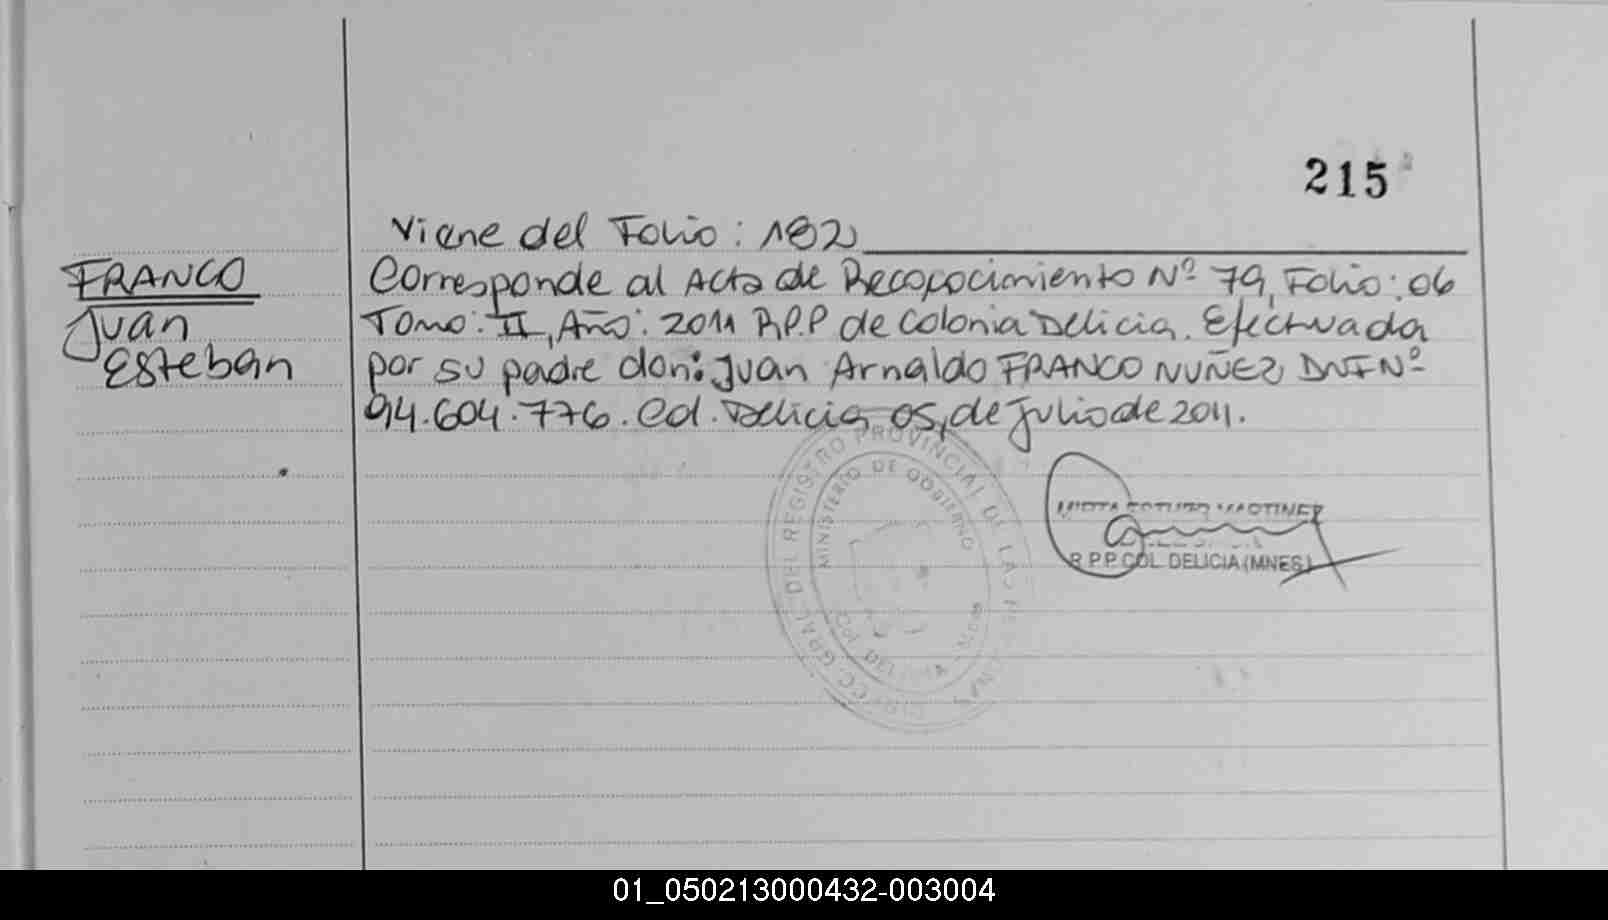 215
Viene del Folio: 182
FRANCO
Juan
Esteban
Corresponde al Acta de Recococimiento Nº 79, Folio: 06
Tomo: II, Año: 2011 R.P.P de Colonia Delicia. Efectuada
por su padre don: Juan Arnaldo FRANCO NUÑEZ DNI Nº
94.604.776. Col. Delicia, 05, de julio de 2011.
DIRECC. GRAL. DEL REGISTRO PROVINCIAL DE LAS
MINISTERIO DE GOBIERNO
MARTINEZ
R.P.P. COL. DELICIA (MNES)
01_050213000432-003004